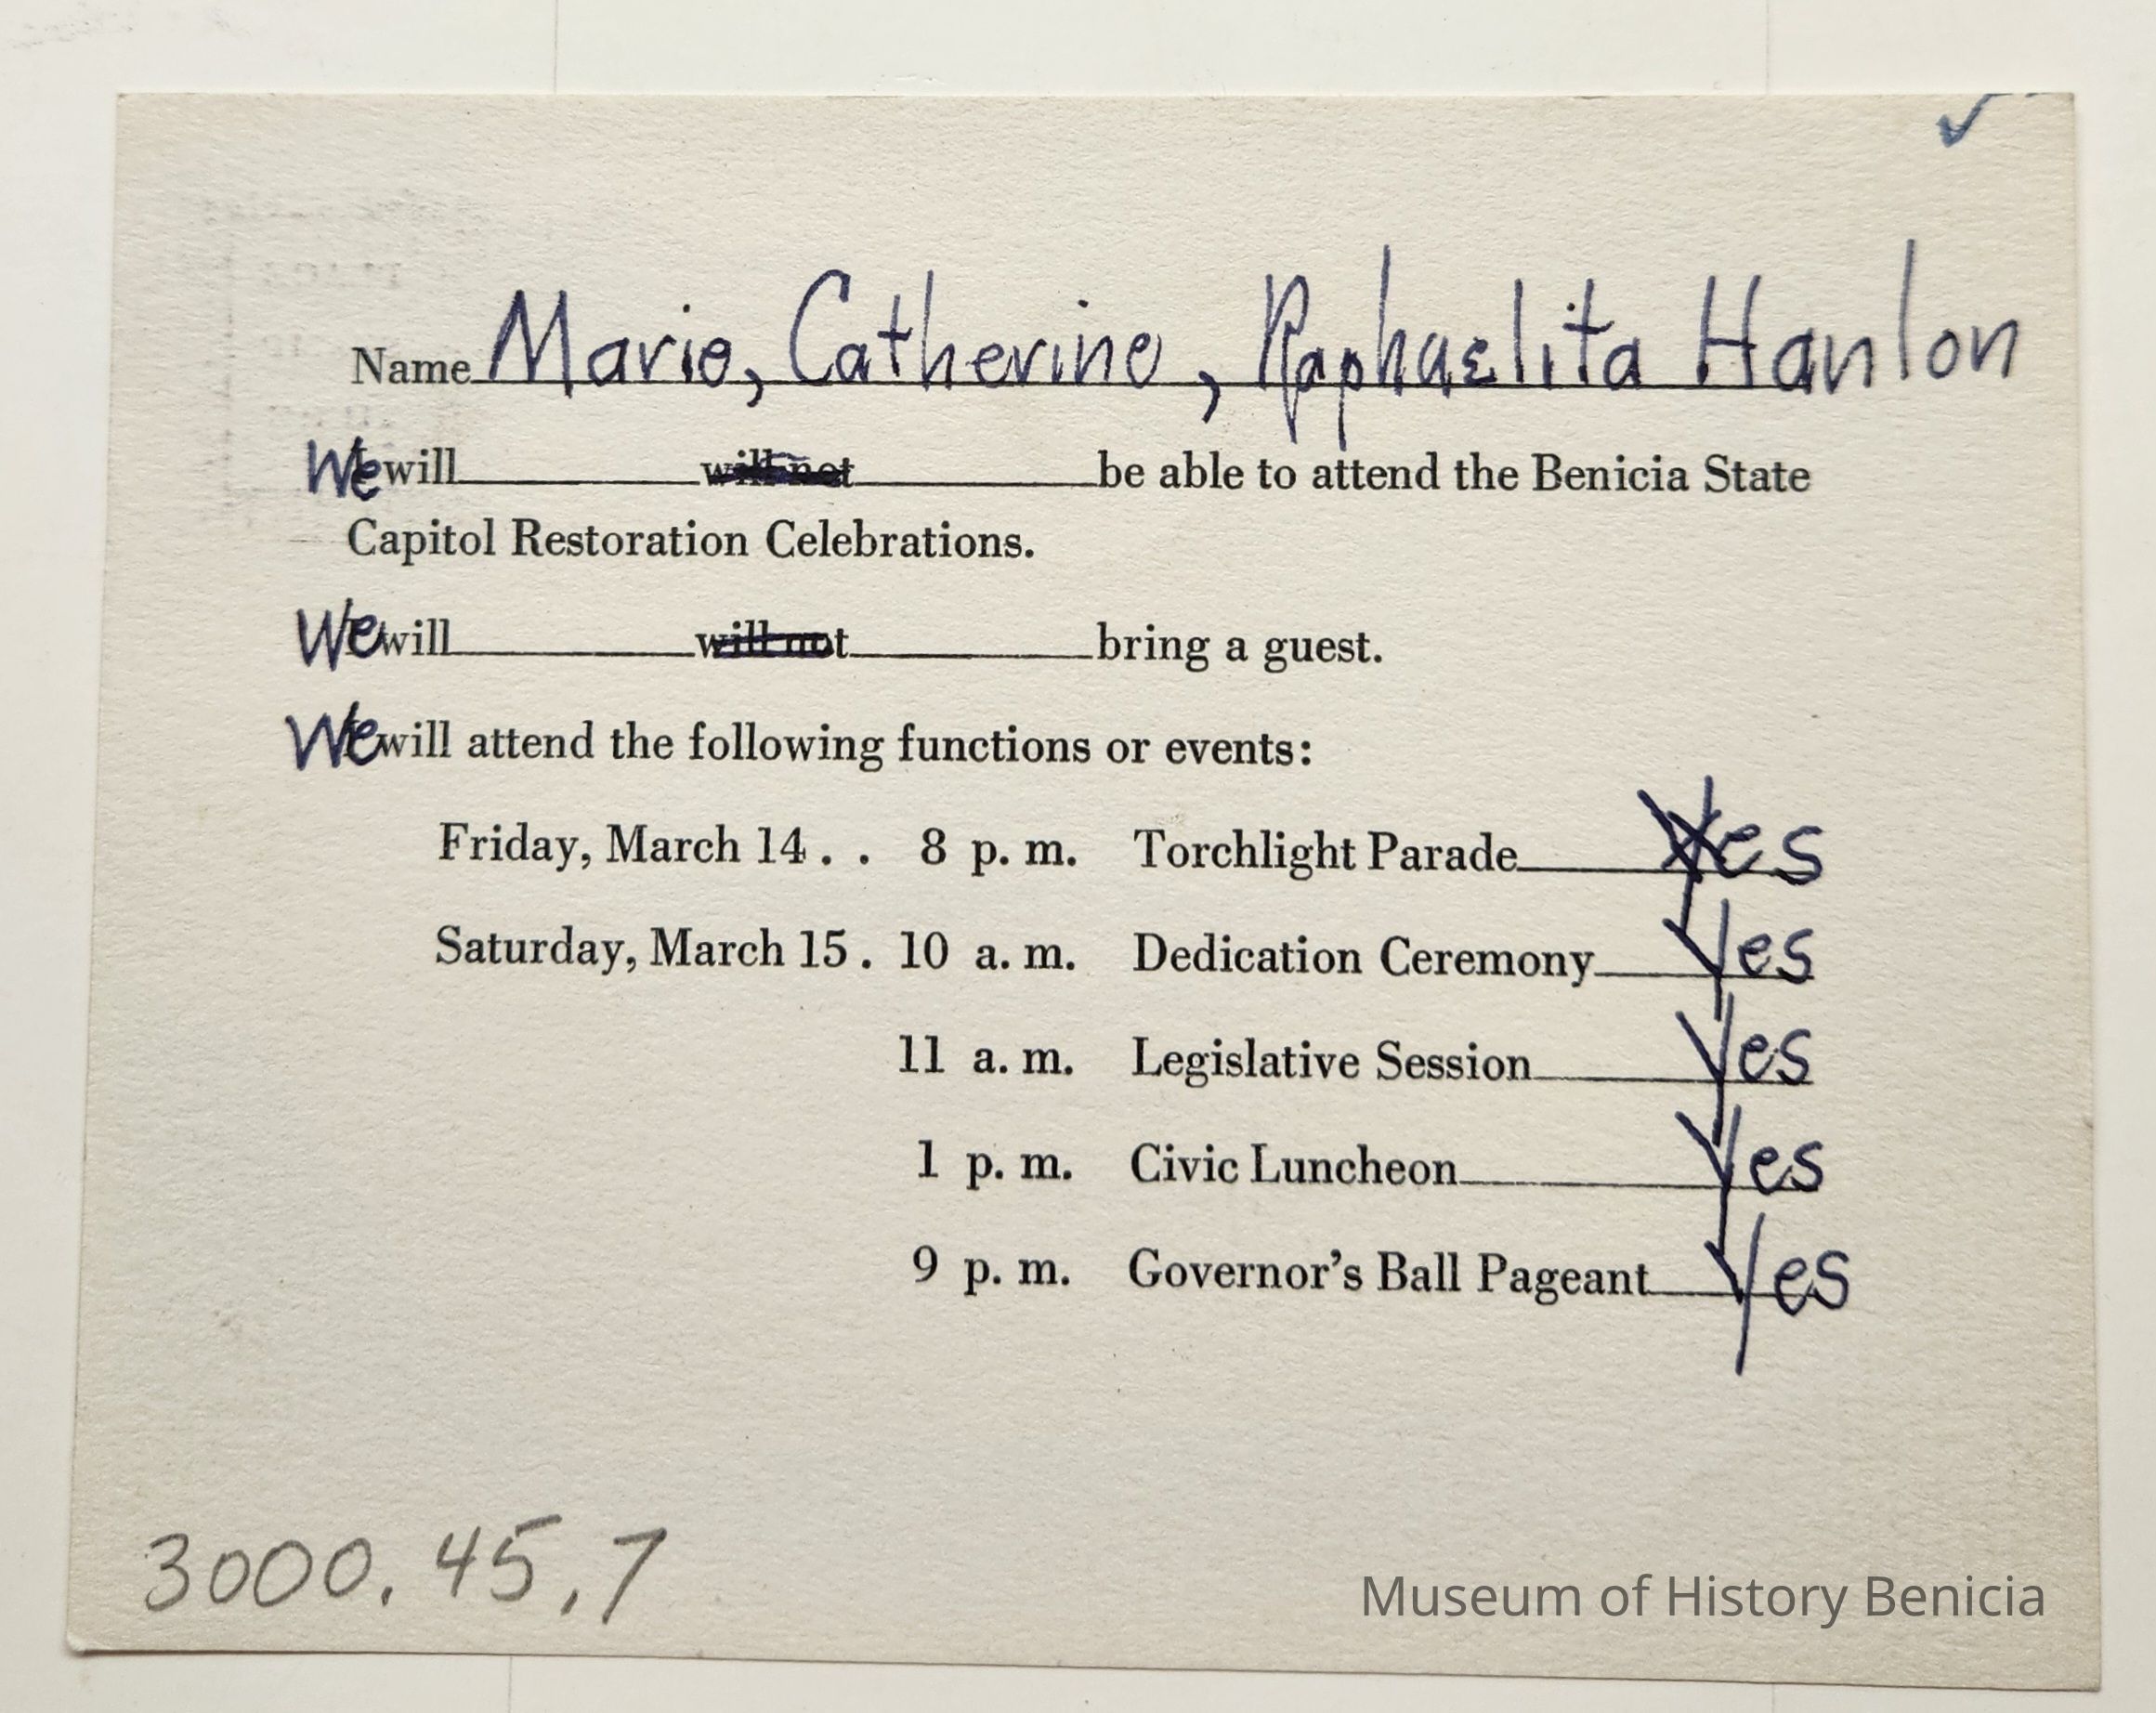 Name Marie, Catherine, Raphaelita Hanlon
We will will not be able to attend the Benicia State
Capitol Restoration Celebrations.
We will will not bring a guest.
We will attend the following functions or events:
Friday, March 14 . . 8 p. m. Torchlight Parade Yes
Saturday, March 15 . 10 a. m. Dedication Ceremony Yes
11 a. m. Legislative Session Yes
1 p. m. Civic Luncheon Yes
9 p. m. Governor's Ball Pageant Yes
3000.45.7
Museum of History Benicia